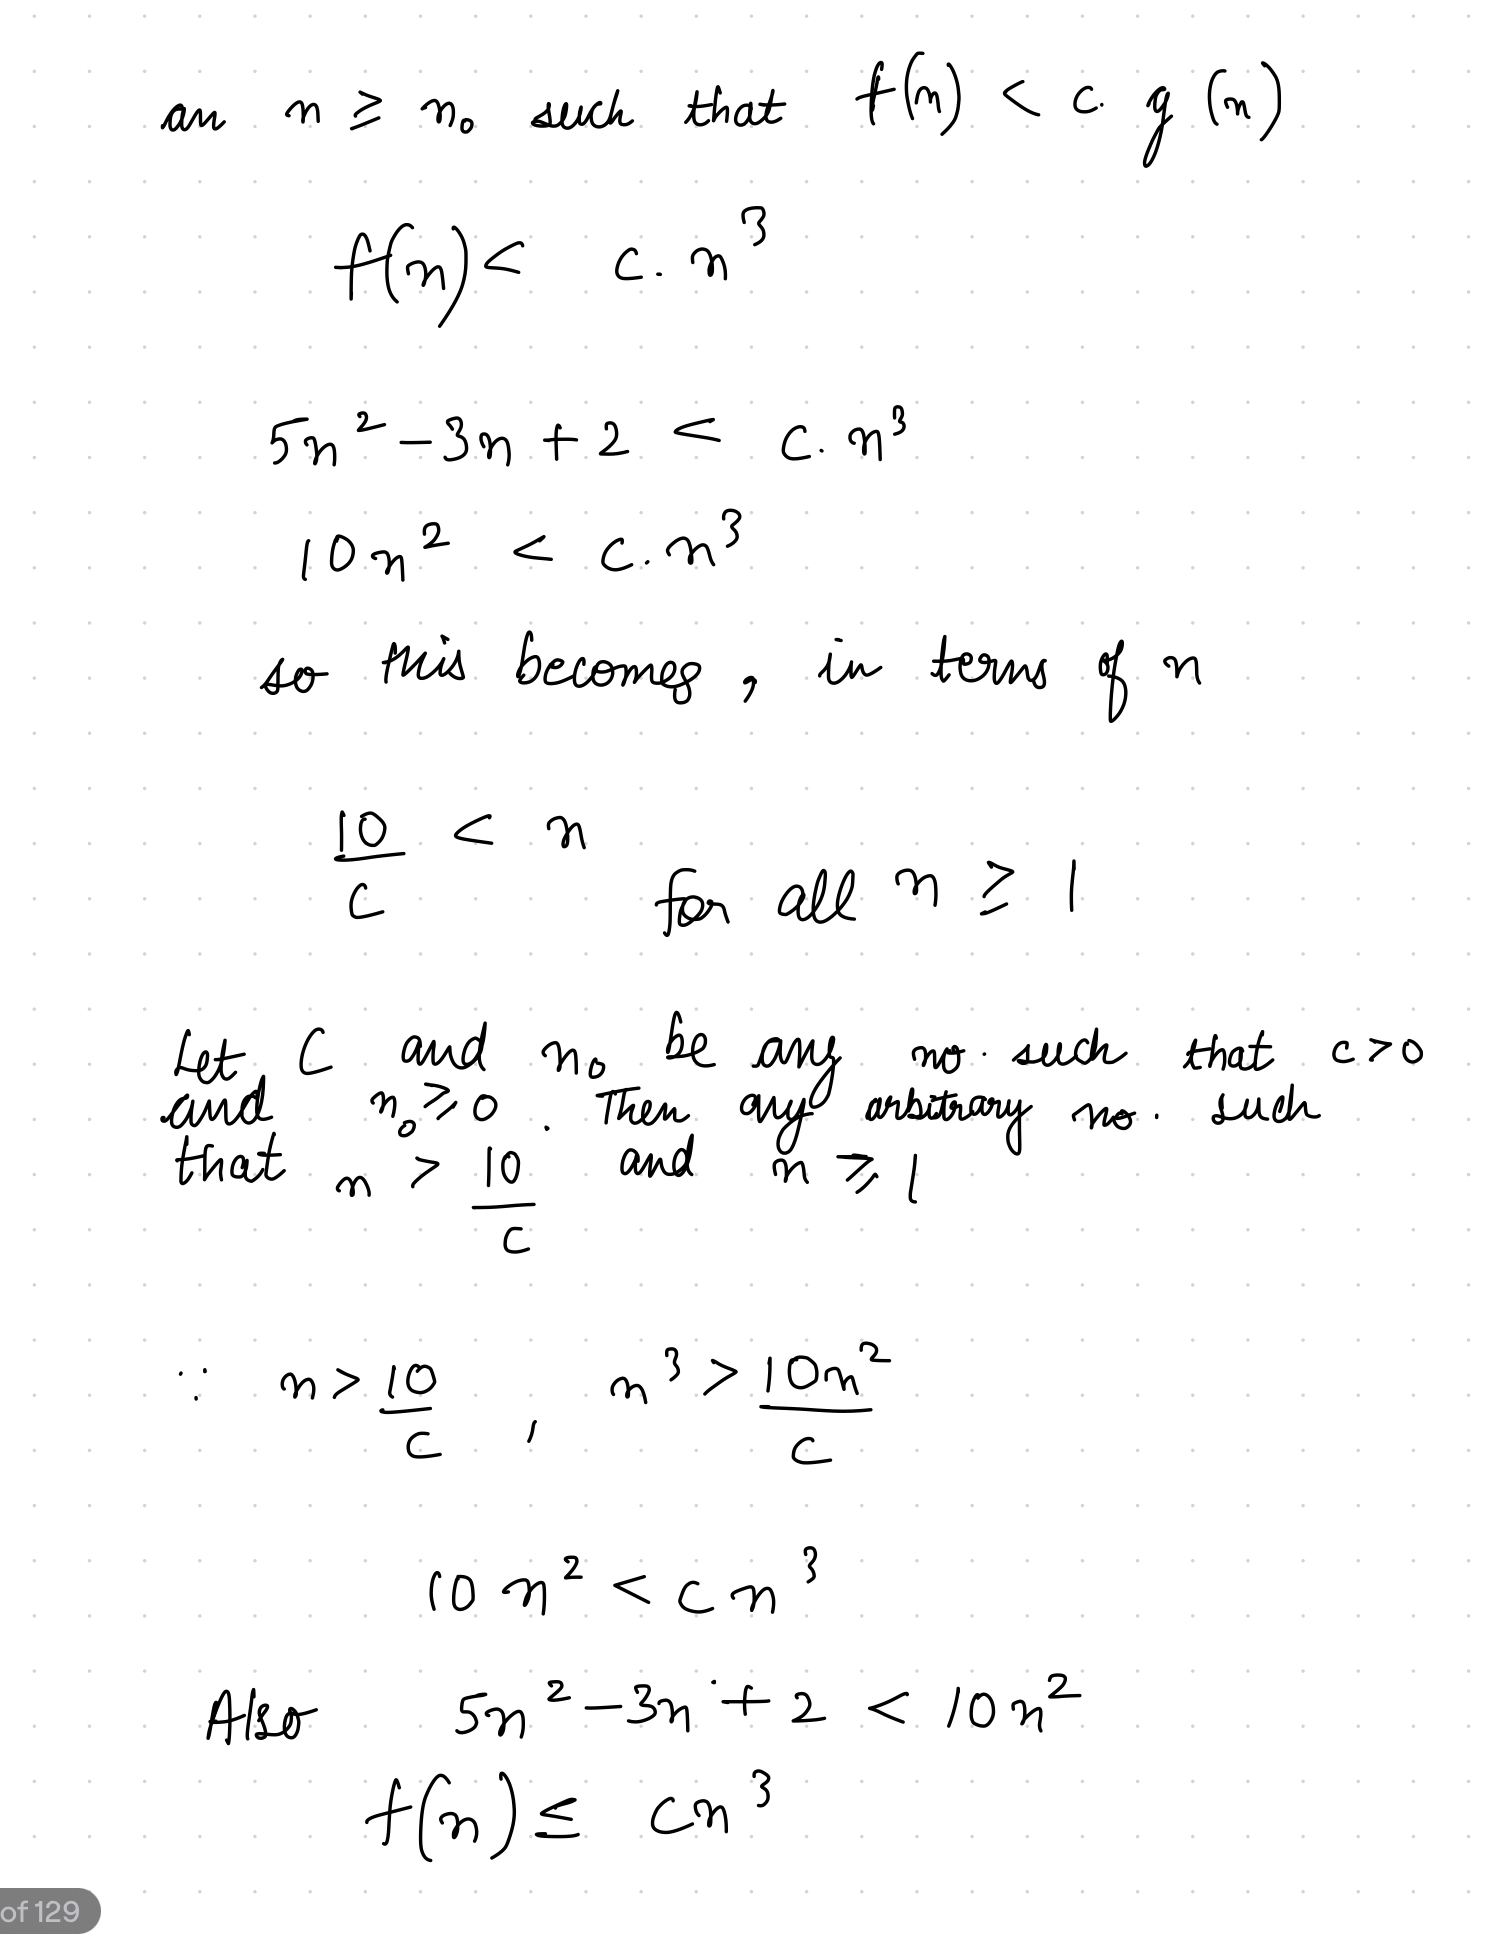 an n ≥ n₀ such that f(n) < c. g(n)
f(n) < c. n³
5n² - 3n + 2 < c. n³
10n² < c. n³
so this becomes, in terms of n
10/c < n for all n ≥ 1
Let C and n₀ be any no. such that c > 0
and n₀ ≥ 0. Then any arbitrary no. such
that n > 10/c and n ≥ 1
∵ n > 10/c , n³ > 10n²/c
10n² < cn³
Also 5n² - 3n + 2 < 10n²
f(n) ≤ cn³
of 129